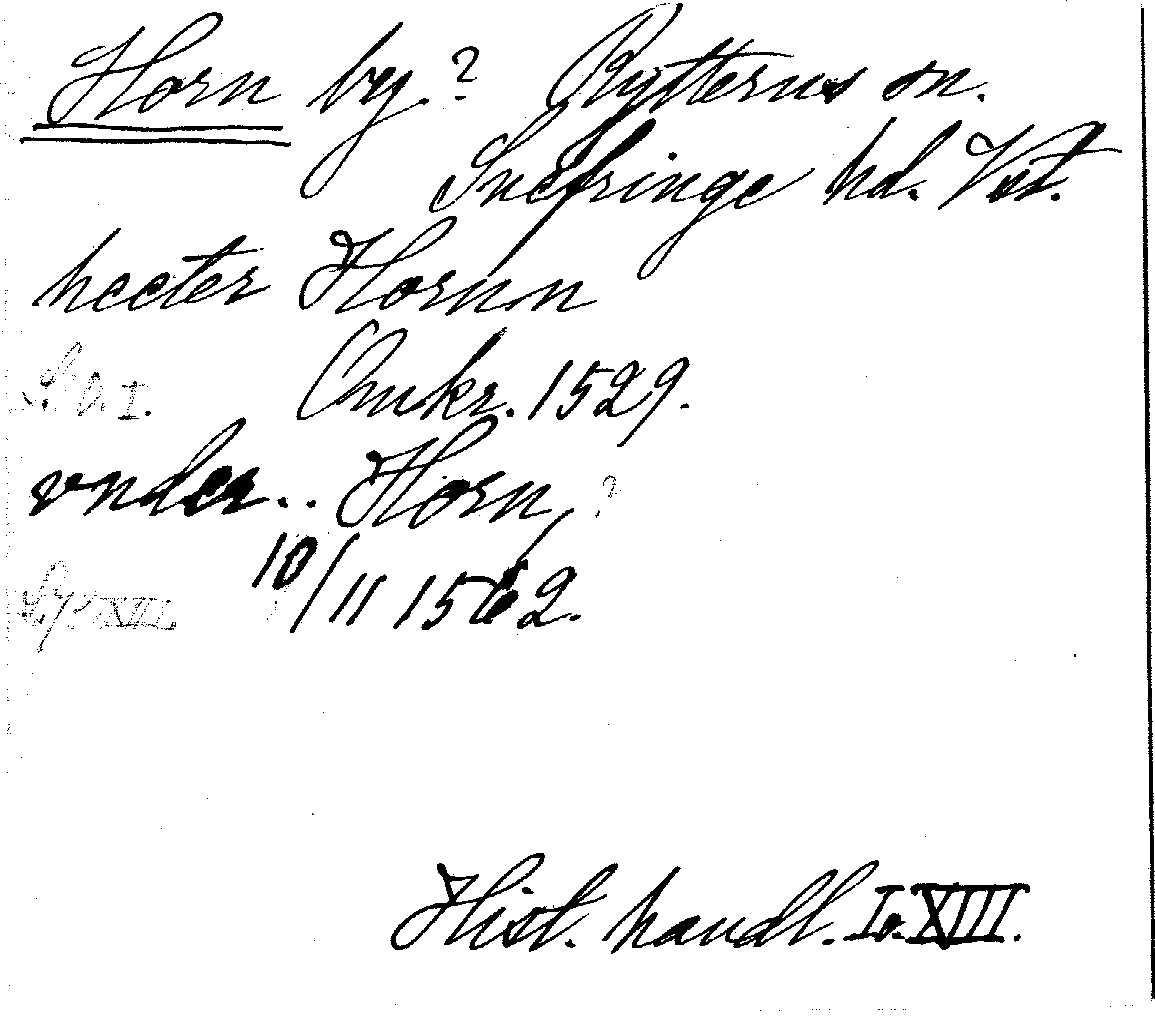 Horn by? Rytterns sn.
Snefringe hd. Vst.
heeter Hornn
S. O. I. Omkr. 1529.
vnder.. Horn, ?
10/11 1562.
Hist. handl. I o. XIII.